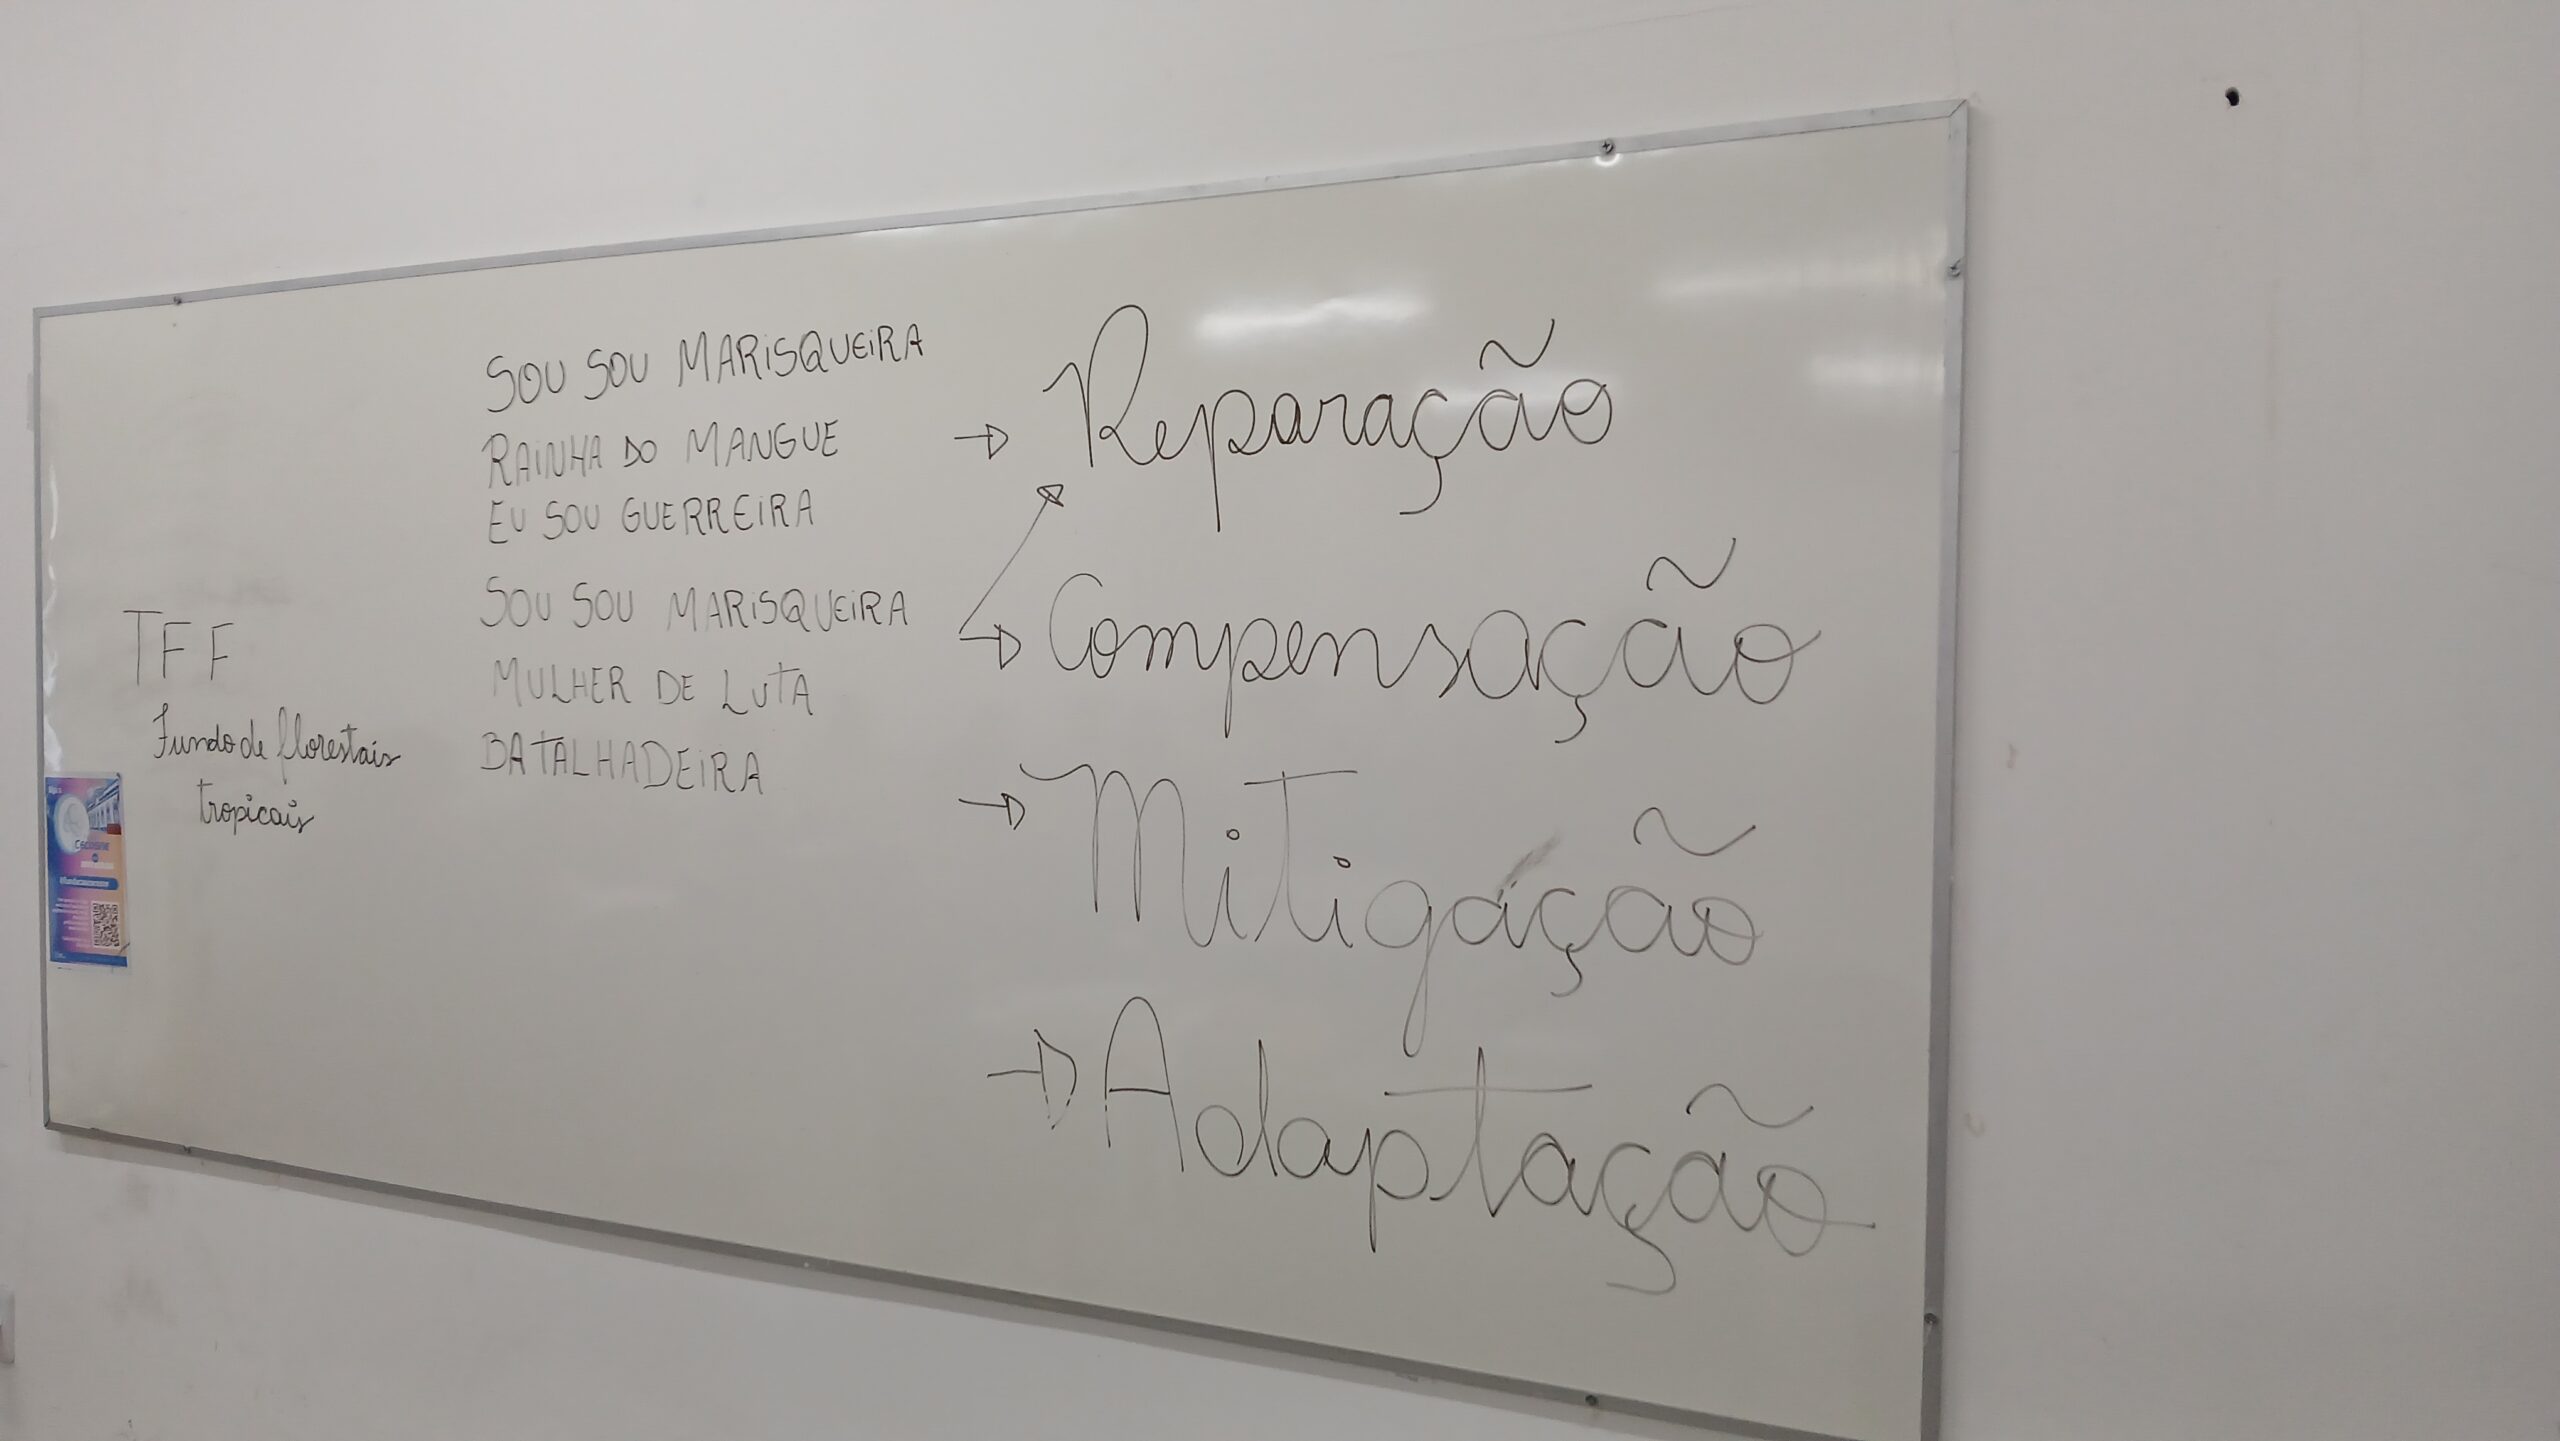 TFF
Fundo de florestais
tropicais
SOU SOU MARISQUEIRA
RAINHA DO MANGUE
EU SOU GUERREIRA
SOU SOU MARISQUEIRA
MULHER DE LUTA
BATALHADEIRA
→ Reparação
→ Compensação
→ Mitigação
→ Adaptação